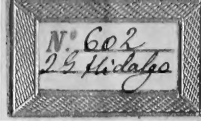 Nº 602
2 G Hidalgo